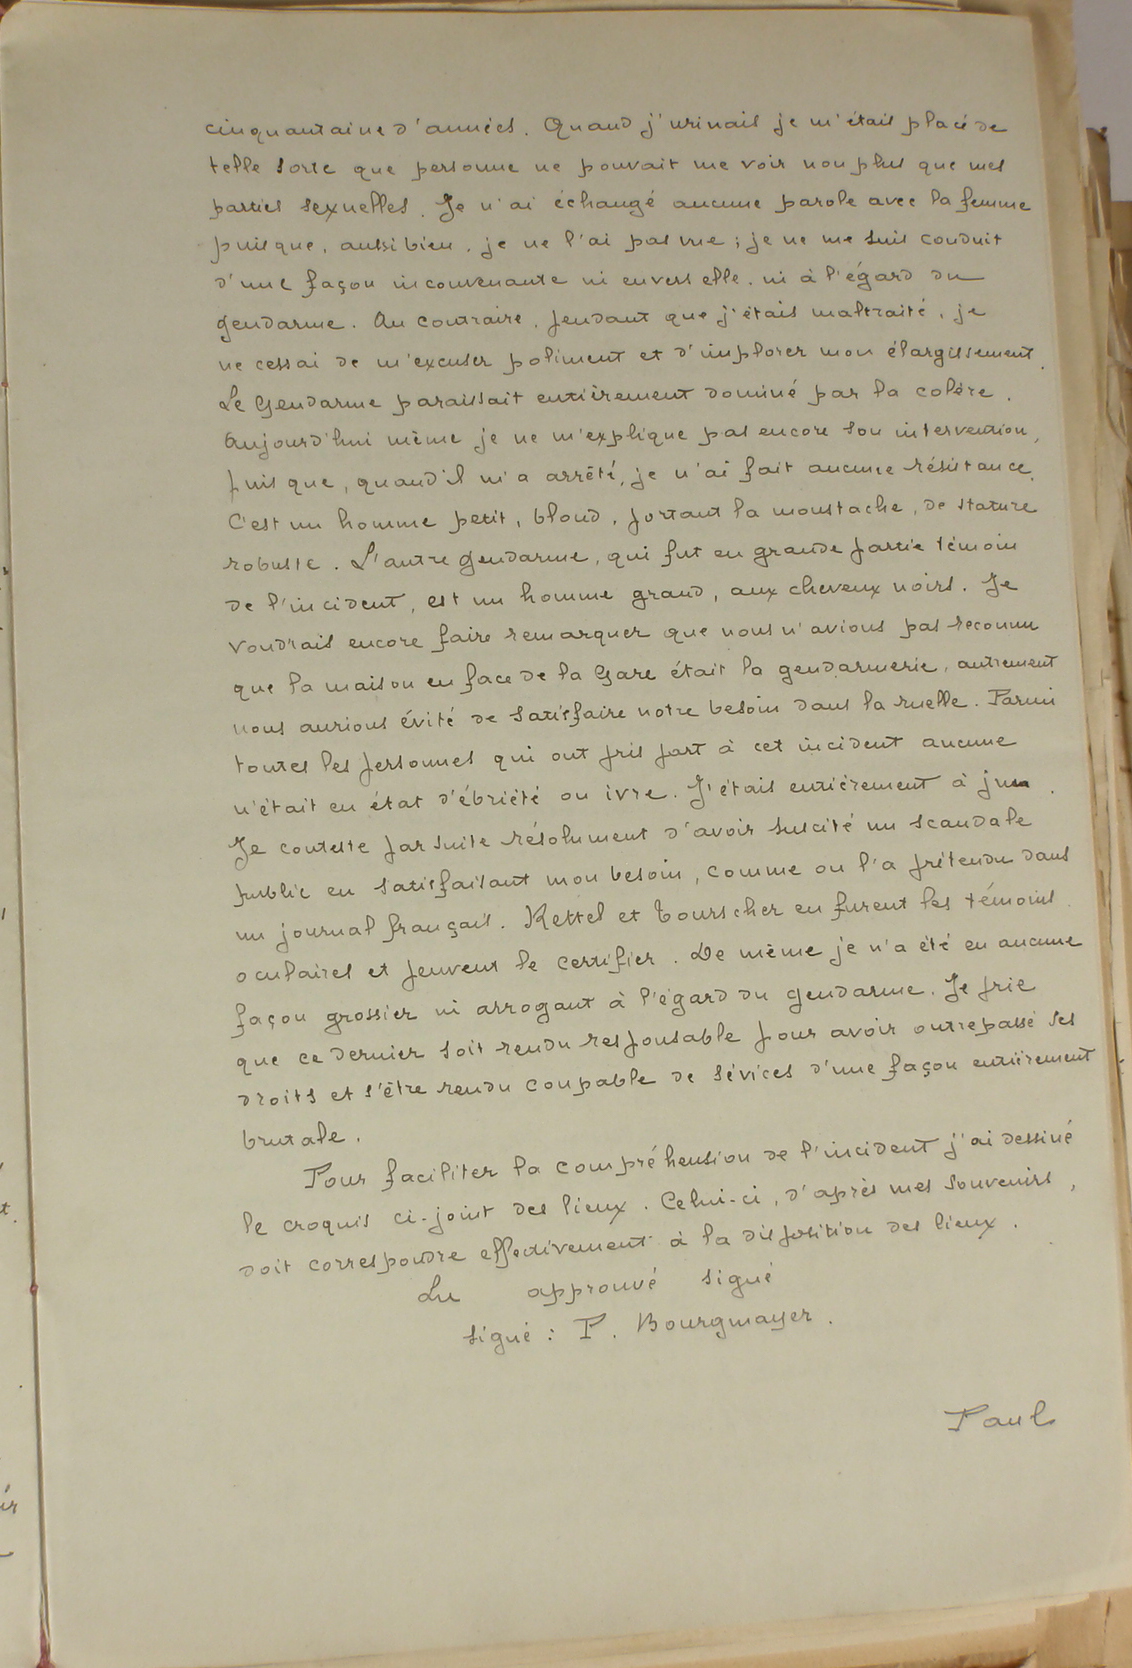 cinquantaine d'années. Quand j'urinais je m'étais placé de
telle sorte que personne ne pouvait me voir non plus que mes
parties sexuelles. Je n'ai échangé aucune parole avec la femme
puisque, aussi bien, je ne l'ai pas vue ; je ne me suis conduit
d'une façon inconvenante ni envers elle, ni à l'égard du
gendarme. Au contraire, pendant que j'étais maltraité, je
ne cessai de m'excuser poliment et d'implorer mon élargissement.
Le gendarme paraissait entièrement dominé par la colère.
Aujourd'hui même je ne m'explique pas encore son intervention,
puis que, quand'il m'a arrêté, je n'ai fait aucune résistance.
C'est un homme petit, blond, portant la moustache, de stature
robuste. L'autre gendarme, qui fut en grande partie témoin
de l'incident, est un homme grand, aux cheveux noirs. Je
voudrais encore faire remarquer que nous n'avions pas reconnu
que la maison en face de la Gare était la gendarmerie, autrement
nous aurions évité de satisfaire notre besoin dans la ruelle. Parmi
toutes les personnes qui ont pris part à cet incident aucune
n'était en état d'ébriété ou ivre. J'étais entièrement à jeun.
Je conteste par suite résolument d'avoir suscité un scandale
public en satisfaisant mon besoin, comme on l'a prétendu dans
un journal français. Kettel et Tourscher en furent les témoins
oculaires et peuvent le certifier. De même je n'a été en aucune
façon grossier ni arrogant à l'égard du gendarme. Je prie
que ce dernier soit rendu responsable pour avoir outrepassé ses
droits et s'être rendu coupable de sévices d'une façon entièrement
brutale.
Pour faciliter la compréhension de l'incident j'ai dessiné
le croquis ci-joint des lieux. Celui-ci, d'après mes souvenirs,
doit correspondre effectivement à la disposition des lieux.
Lu approuvé signé
signé : P. Bourgmayer.
Paul